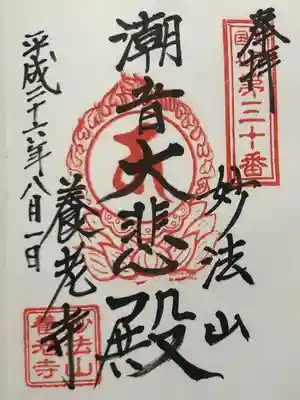 奉拝
国札第三十番
妙法山
潮音大悲殿
養老寺
平成二十六年八月一日
妙法山
養老寺